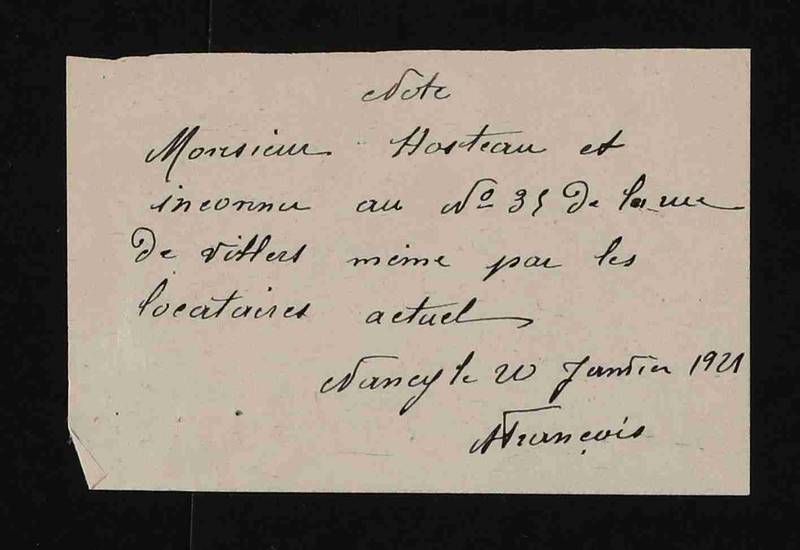 Note
Monsieur Hosteau et
inconnu au No 35 de la rue
de Villers même par les
locataires actuel
Nancy le 20 Janvier 1921
François